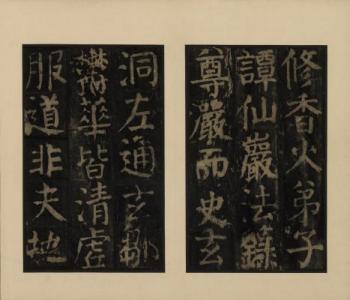 修香火弟子
譚仙巖法籙
尊嚴而史玄
洞左通玄鄒
欝華皆清虛
服道非夫地